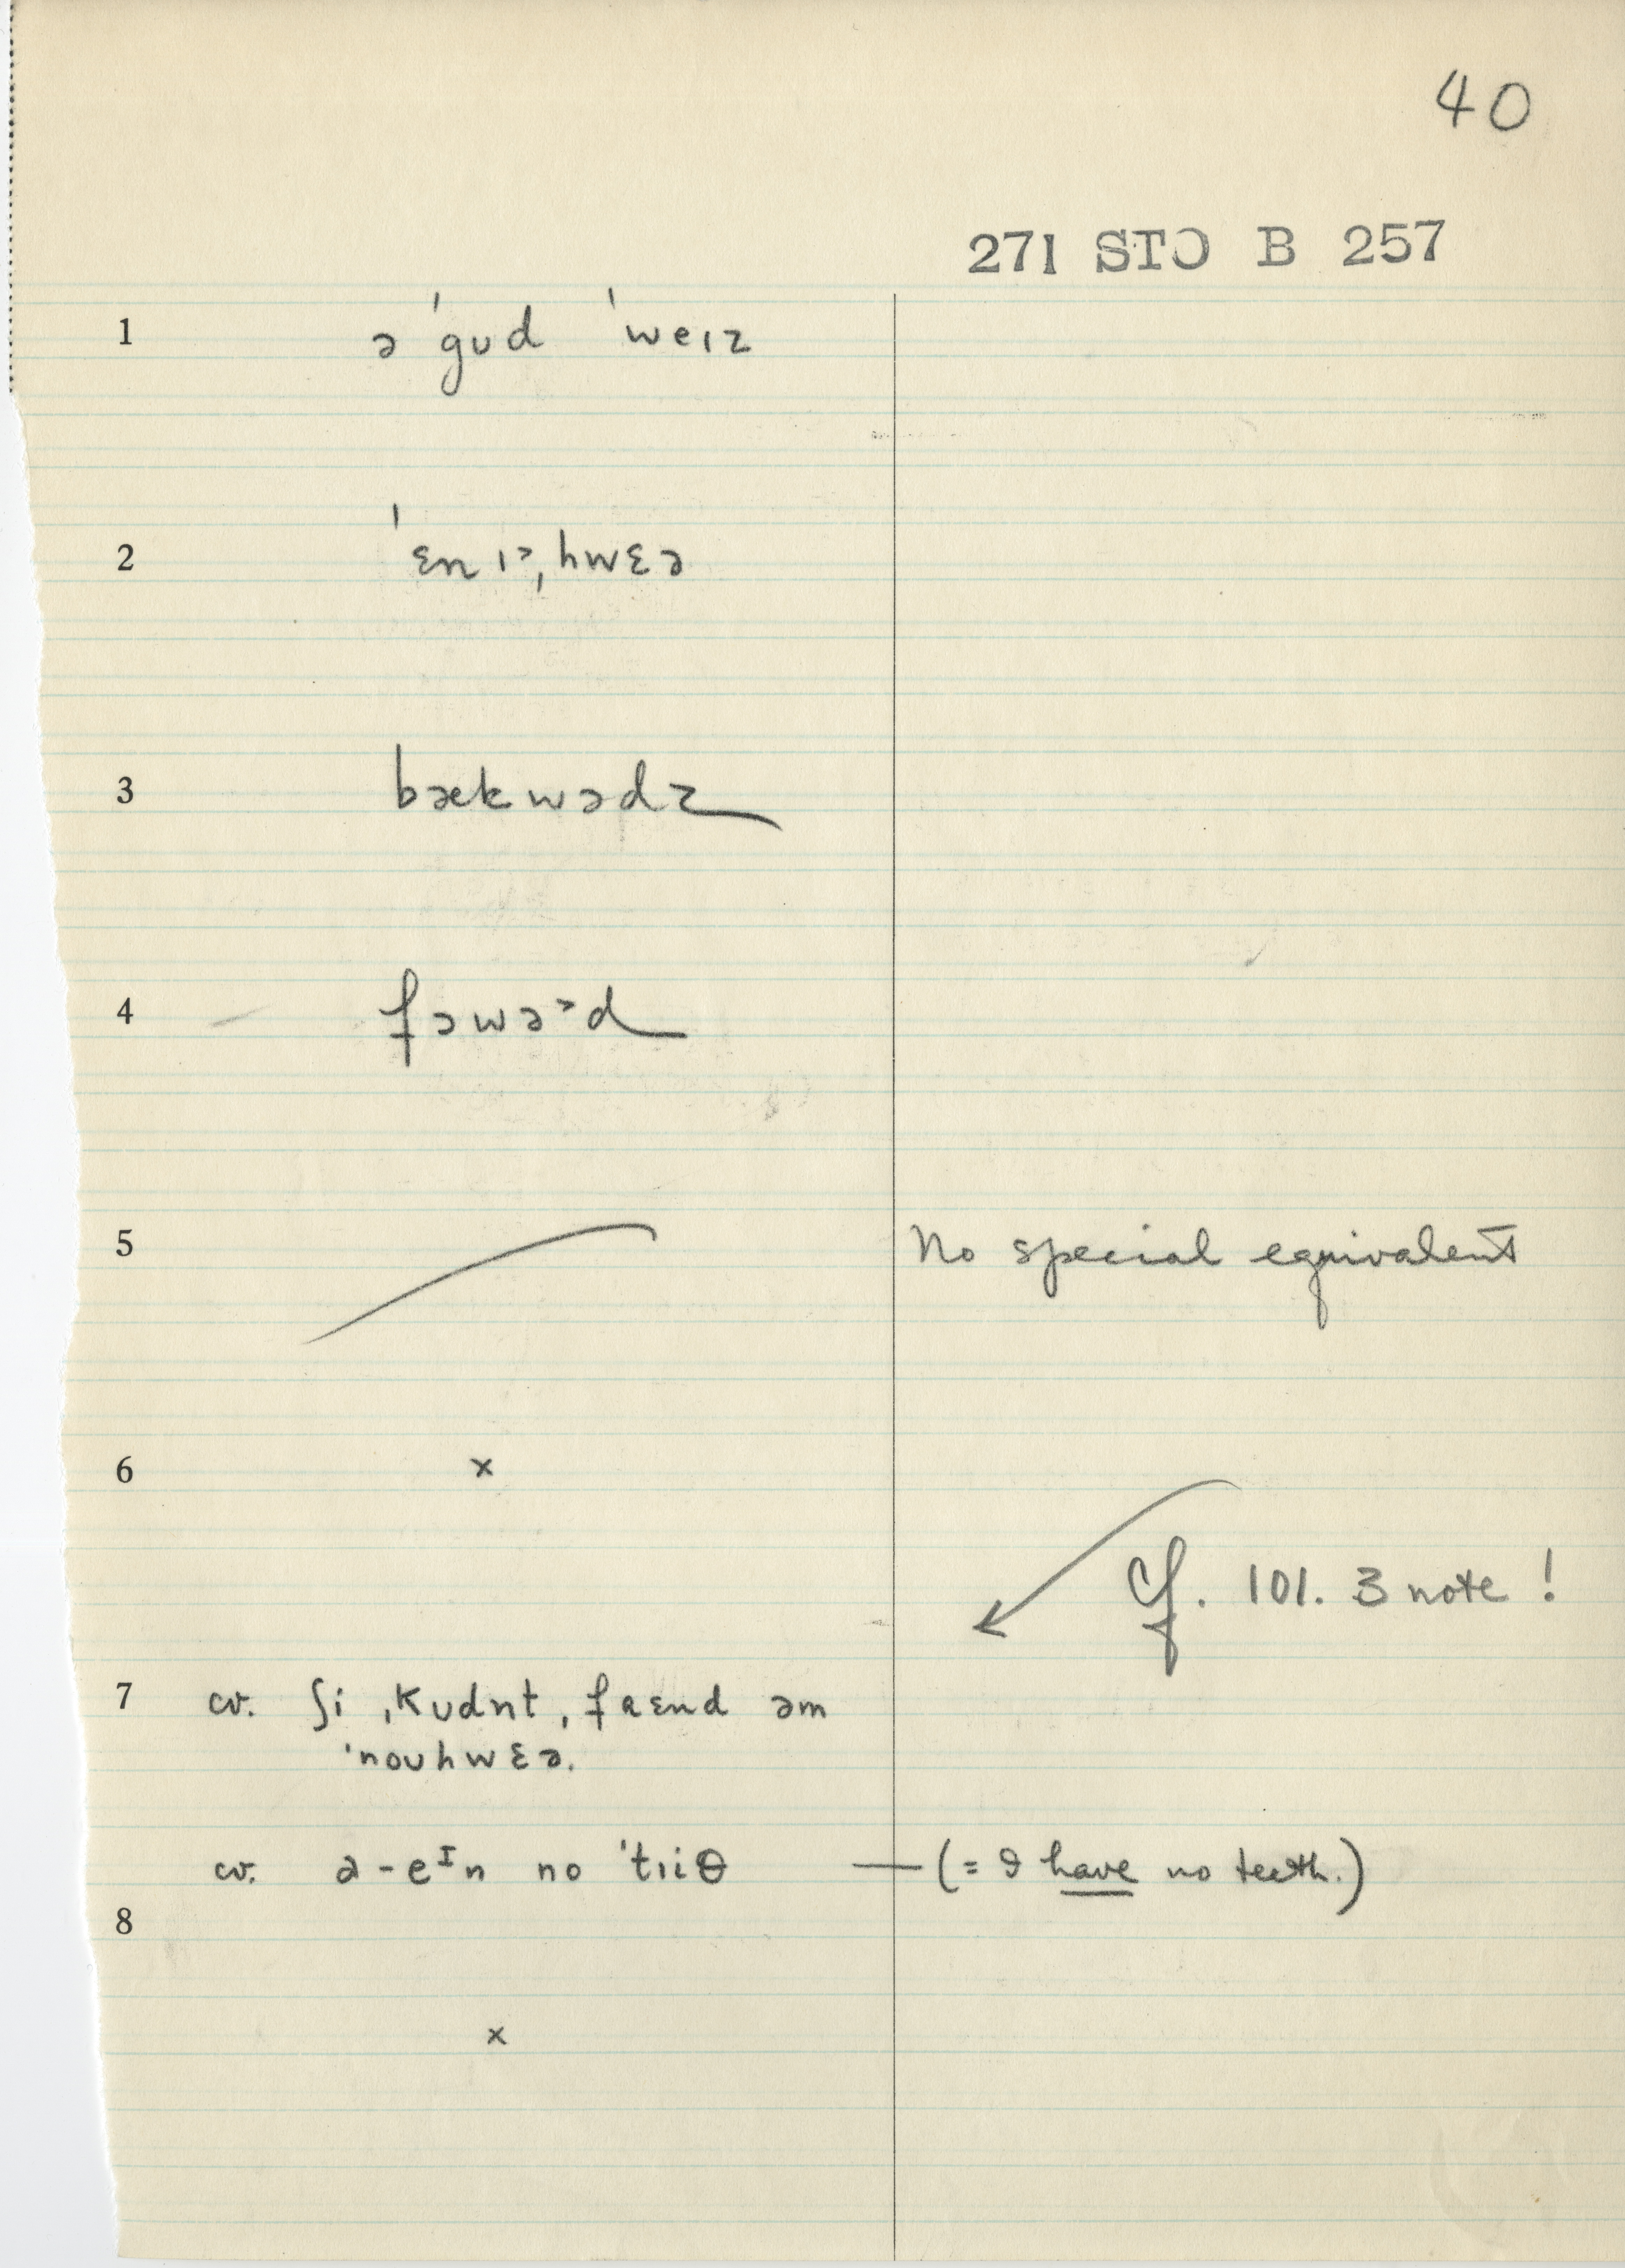 40
271 STO B 257
1 ə ˈgʊd ˈweɪz
2 ˈɛnɪ˃ˌhwɛə
3 bækwədz
4 fəwə˃d
5 No special equivalent
6 x
cf. 101. 3 note !
7 cv. ʃi ˌkʊdnt ˌfaɛnd əm
ˈnoʊhwɛə.
cv. a-eᴵn no ˈtɪiθ — (= I have no teeth.)
8
x